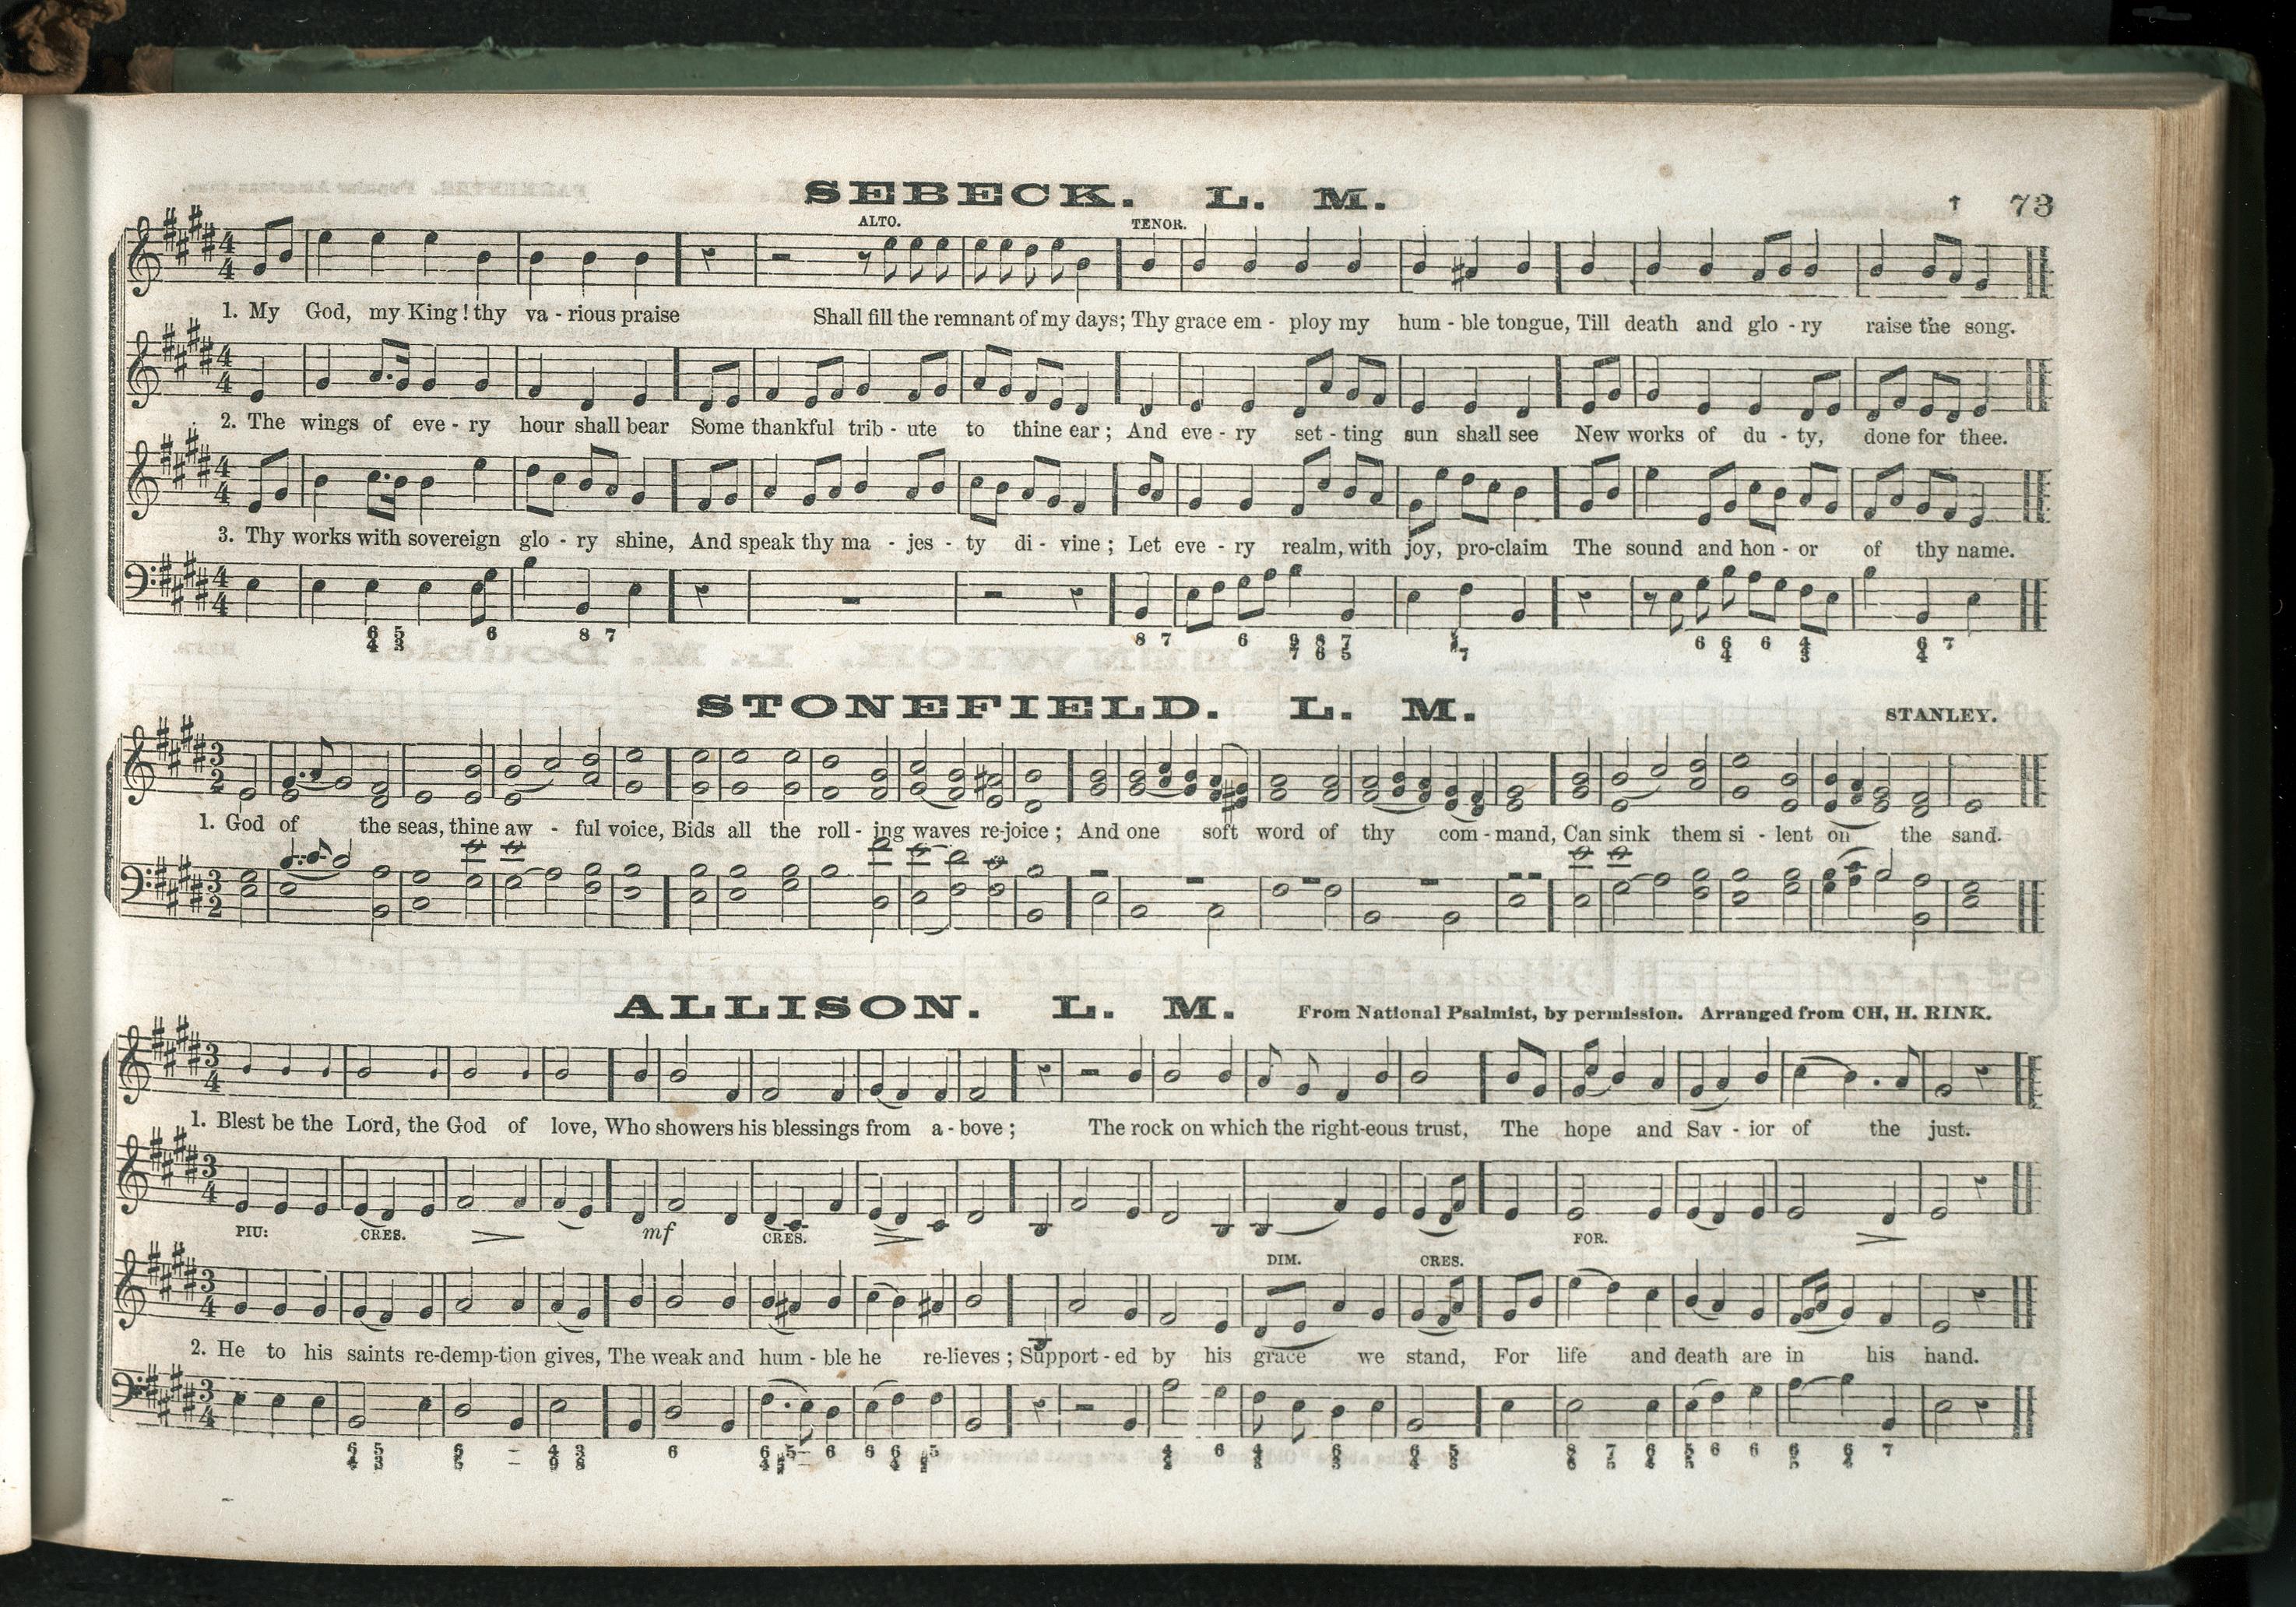 SEBECK. L. M.
† 73
ALTO. TENOR.
1. My God, my King! thy va - rious praise Shall fill the remnant of my days; Thy grace em - ploy my hum - ble tongue, Till death and glo - ry raise the song.
2. The wings of eve - ry hour shall bear Some thankful trib - ute to thine ear; And eve - ry set - ting sun shall see New works of du - ty, done for thee.
3. Thy works with sovereign glo - ry shine, And speak thy ma - jes - ty di - vine; Let eve - ry realm, with joy, pro-claim The sound and hon - or of thy name.
STONEFIELD. L. M.
STANLEY.
1. God of the seas, thine aw - ful voice, Bids all the roll - ing waves re-joice; And one soft word of thy com - mand, Can sink them si - lent on the sand.
ALLISON. L. M. From National Psalmist, by permission. Arranged from CH, H. RINK.
1. Blest be the Lord, the God of love, Who showers his blessings from a - bove; The rock on which the right-eous trust, The hope and Sav - ior of the just.
PIU: CRES. mf CRES. FOR.
DIM. CRES.
2. He to his saints re-demp-tion gives, The weak and hum - ble he re-lieves; Support - ed by his grace we stand, For life and death are in his hand.